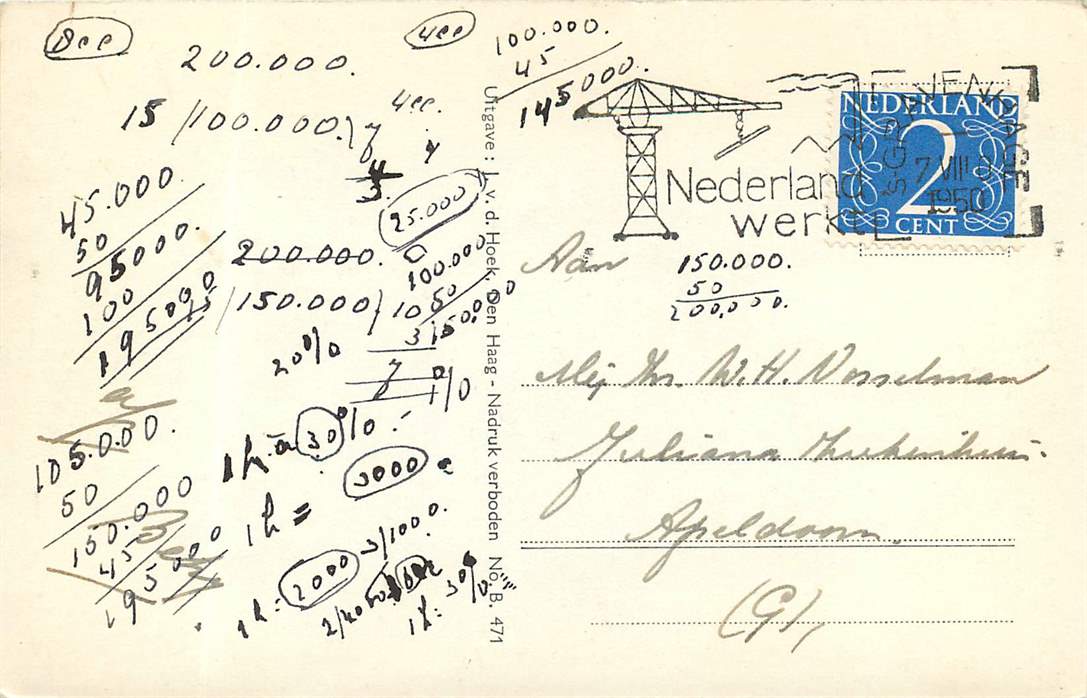 8ee
200.000.
4ee
100.000.
45
145000.
15 /100.000.) 7
4ee.
45.000
50
95000.
100
195000
25.000
200.000.
100.000
50
15 /150.000/ 10
3
7
20%
7%
1 h. à 30%
3000
1 h =
1 h = 2000
3/1000.
105.000.
50
150.000
45
195000
Uitgave: J. v. d. Hoek, Den Haag - Nadruk verboden No. B. 471
Nederland
werkt
'S-GRAVENHAGE
7 VIII
1950
NEDERLAND
2
CENT
Aan
150.000.
50
200.000.
Mej Zr. W.H. Vosselman
Juliana Ziekenhuis.
Apeldoorn.
(G),